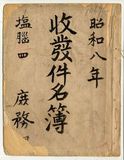 昭和八年
收發件名簿
塩腦四 庶務四